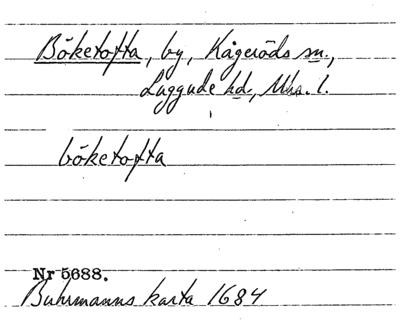 Böketofta, by, Kågeröds sn.,
Luggude hd., Mhs. l.
böketofta
Nr 5688.
Buhrmanns karta 1684